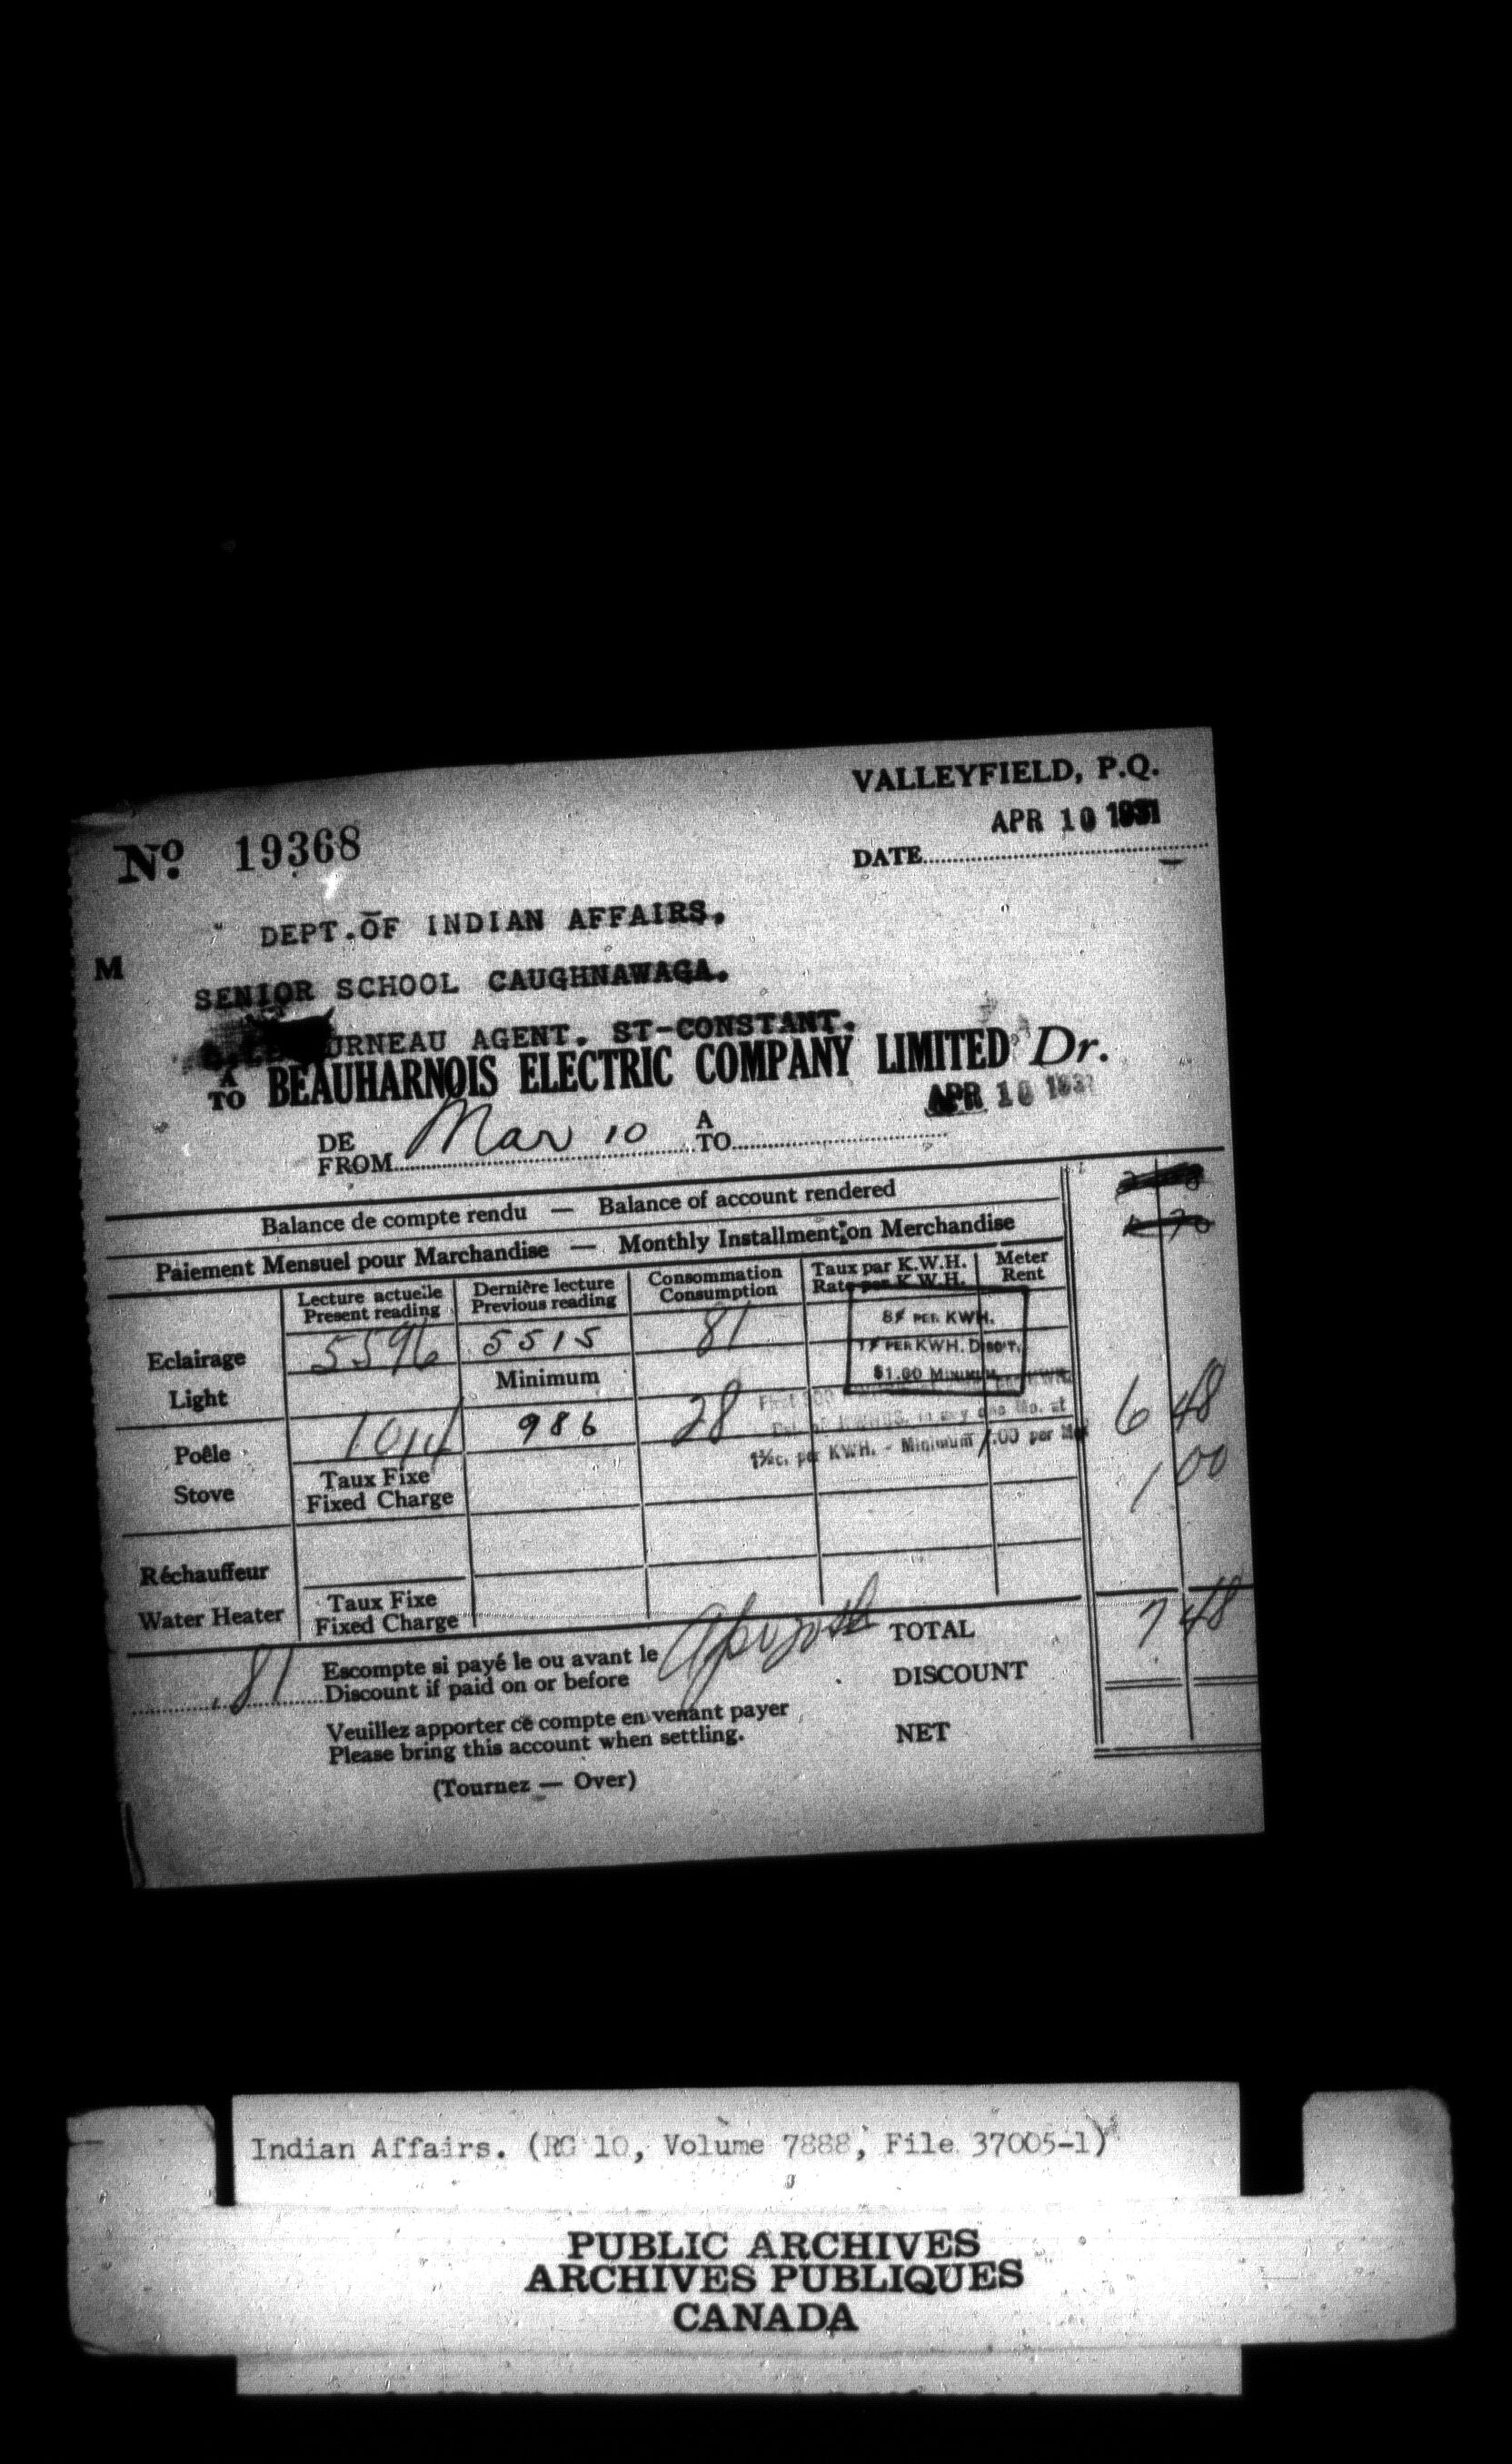 VALLEYFIELD, P.Q.
No. 19368
APR 10 1931
DATE
DEPT.OF INDIAN AFFAIRS.
M
SENIOR SCHOOL CAUGHNAWAGA.
URNEAU AGENT. ST-CONSTANT.
A
TO BEAUHARNOIS ELECTRIC COMPANY LIMITED Dr.
APR 10 1931
DE
FROM Mar 10 A
TO
Balance de compte rendu — Balance of account rendered
Paiement Mensuel pour Marchandise — Monthly Installment on Merchandise
Lecture actuelle
Present reading
Dernière lecture
Previous reading
Consommation
Consumption
Taux par K.W.H.
Rate per K.W.H.
Meter
Rent
Eclairage
Light
5596 5515 81
8¢ PER KWH.
1¢ PER KWH. DISC'T.
$1.00 MINIMUM
Minimum
6 48
Poêle
Stove
1014 986 28
First
in any one Mo. at
1½c. per KWH. - Minimum 1.00 per Mo
1 00
Taux Fixe
Fixed Charge
Réchauffeur
Water Heater
Taux Fixe
Fixed Charge
TOTAL 7 48
.81 Escompte si payé le ou avant le
Discount if paid on or before
DISCOUNT
Veuillez apporter ce compte en venant payer
Please bring this account when settling.
NET
(Tournez — Over)
Indian Affairs. (RG 10, Volume 7888, File 37005-1)
PUBLIC ARCHIVES
ARCHIVES PUBLIQUES
CANADA